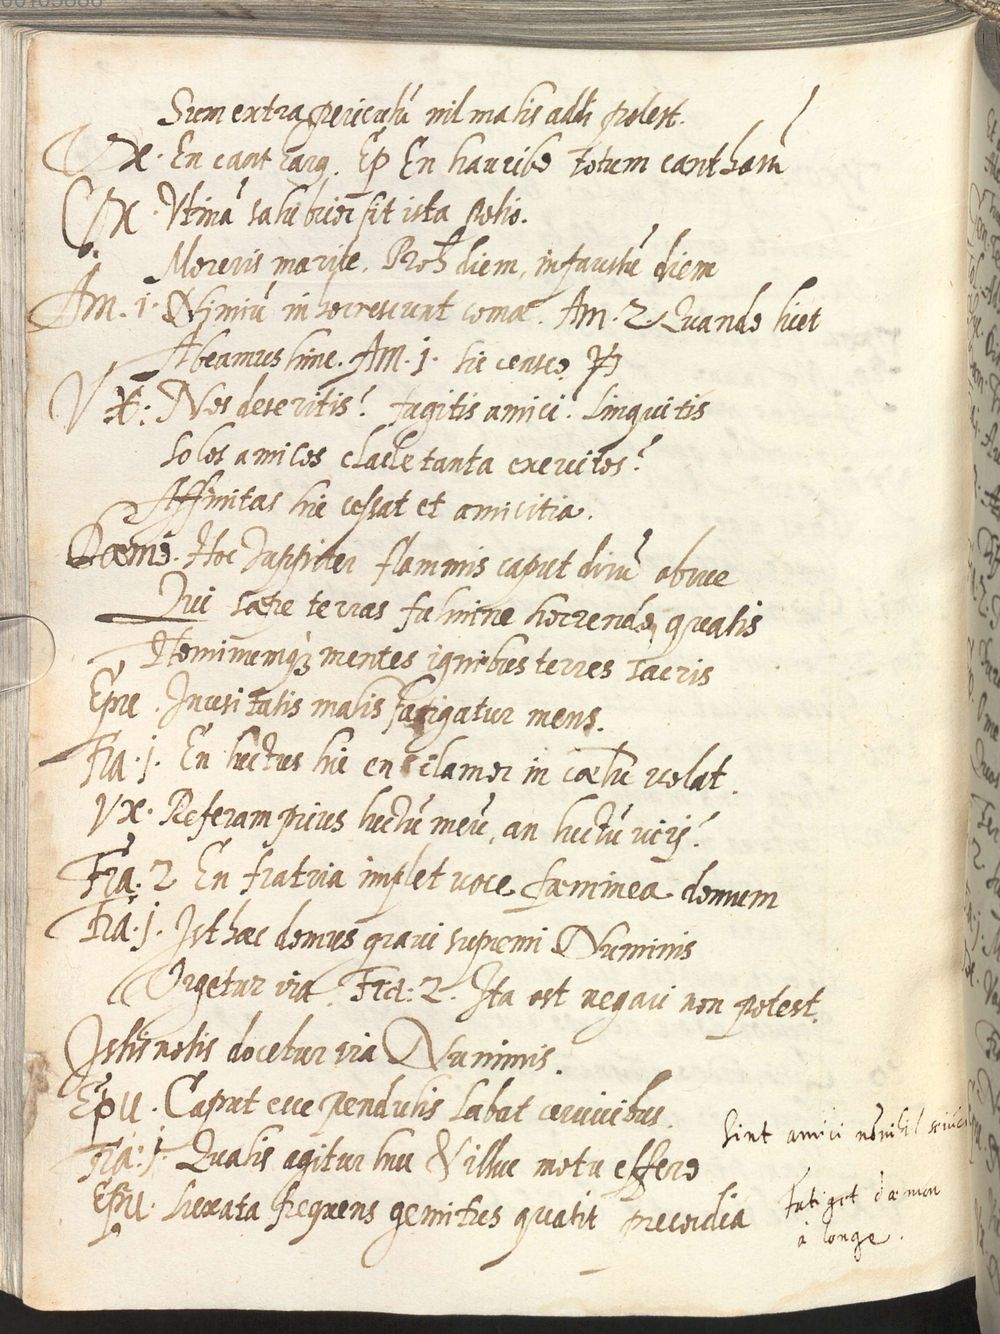 Sum extra periculū nil malis addi potest.
Vx. En cant
Ep En haucibo totum canthařū
Vx. Vtinā salubrior sit ista potio.
Moreris marite. Proh diem, infaustū diem
Am. 1. Nimiū inhorrescunt comæ. Am. 2 Quando licet
Abeamus hinc. Am. 1. sic censeo
Vx: Nos deseritis? fugitis amici? Linquitis
solos amicos clade tanta exercitos?
Affinitas hic cessat et amicitia.
Dæmo. Hoc Iuppiter flammis caput dirū obrue
Qui sæpe terras fulmine horrendo quatis
Hominumq3 mentes ignibus terres sacris
Epu. Inusitatis malis fatigatur mens.
Fra. 1. En luctus hic en clamor in cœlū volat.
Vx. Referam prius luctū meū, an luctū viri?
Fra. 2 En fratria implet voce fæminea domum
Fra. 1. Isthæc domus graui supremi Numinis
Vrgetur ira. Fra: 2. Ita est negari non potest.
Istis notis docetur ira Numinis.
Epu. Caput ecce pendulis labat ceruicibus.
Fra: 1. Qualis agitur huc & illuc motu effero
Epu. luxata frequens gemitus quatit precordia
sint amici
fatiget dæmon
a longe.